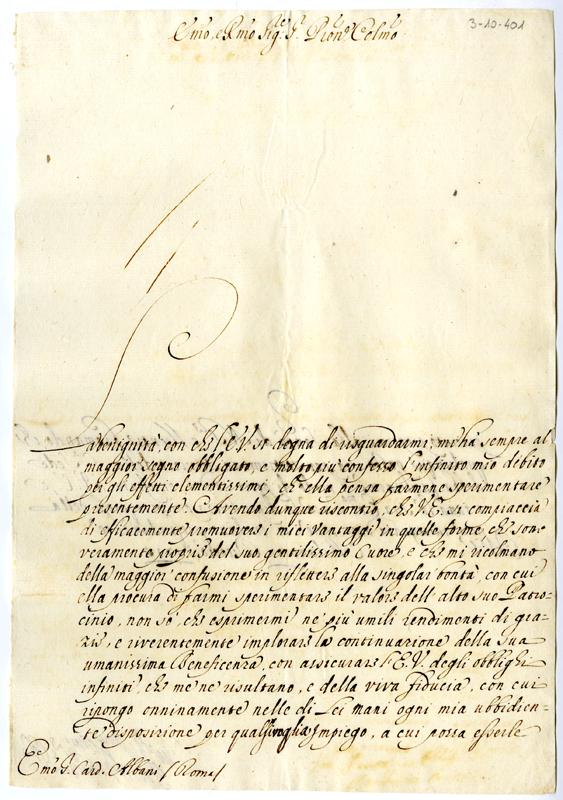 3-10-401
Emo, e Rmo Sig.re S.r P̃ron. Colmo
La benignità, con che l'E.V. si degna di risguardarmi, m'hà sempre al
maggior segno obbligato, e molto più confesso l'infinito mio debito
per gli effetti clementissimi, che ella pensa farmene sperimentare
presentemente. Avendo dunque riscontrio, che V.E. si compiaccia
di efficacemente promuovere i miei vantaggi in quelle forme, che sono
veramente proprie del suo gentilissimo Cuore, e che mi ricolmano
della maggior confusione in riflettere alla singolar bontà, con cui
ella procura di farmi sperimentare il valore dell'alto suo Patro=
cinio, non sò, che esprimermi ne' più umili rendimenti di gra=
zie, e riverentemente implorare la continuazione della sua
umanissima Beneficenza, con assicurare l'E.V. degli obblighi
infiniti, che me ne risultano, e della viva fiducia, con cui
ripongo onninamente nelle di Lei mani ogni mia ubbidien=
te disposizione per qualsivoglia Impiego, a cui possa esserle
Emo S. Card. Albani /Roma/